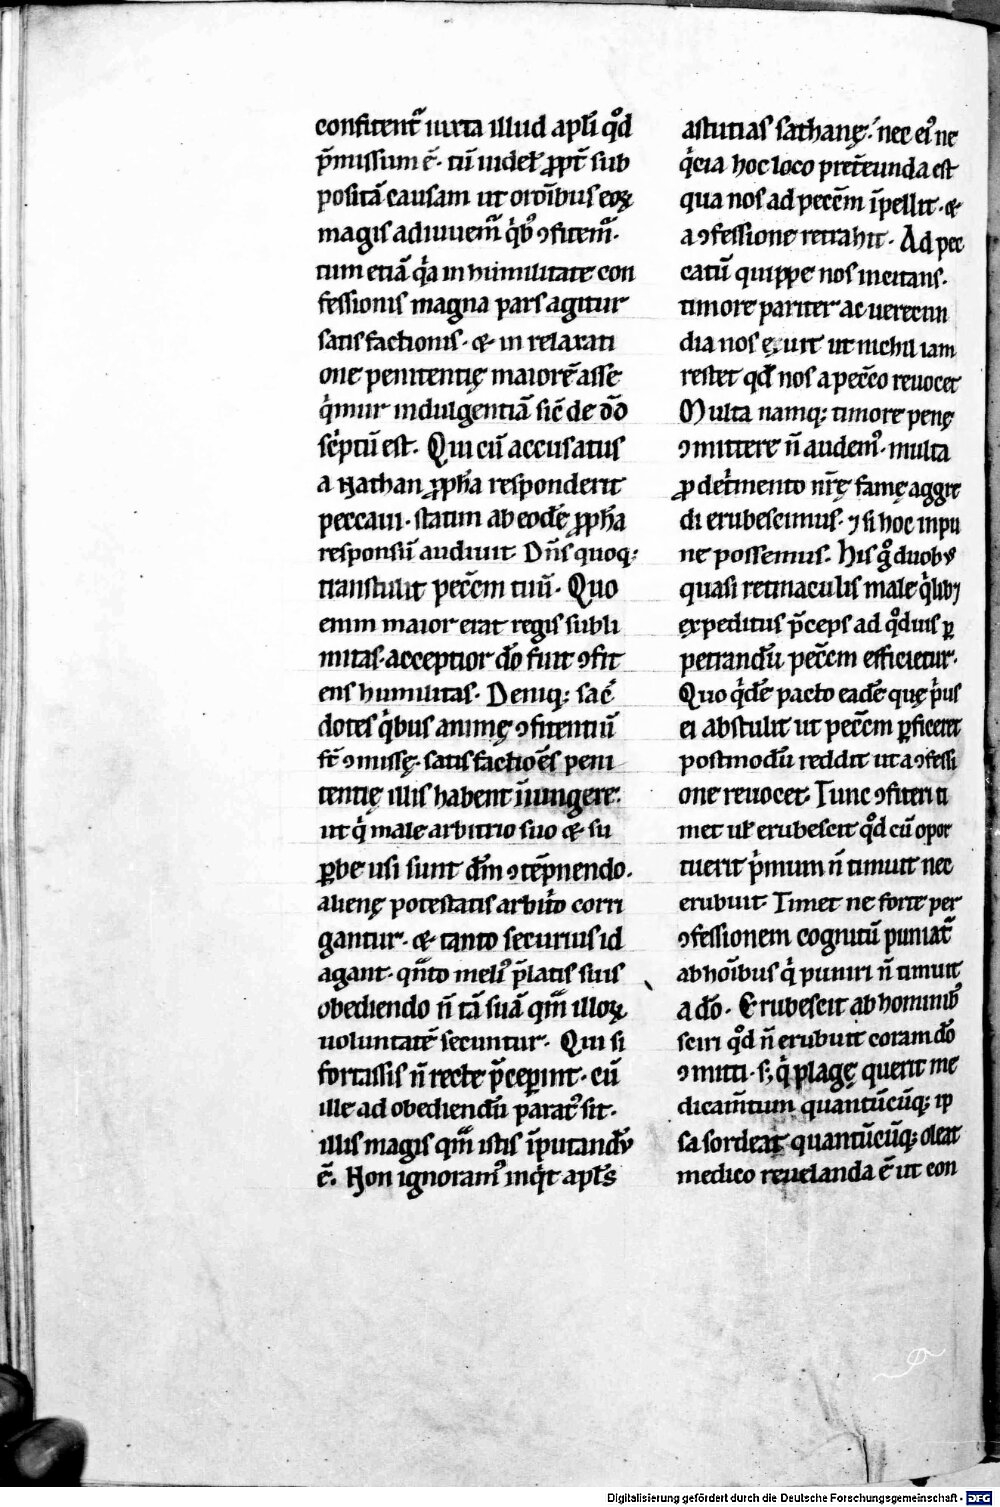 confitent᷑ iuxta illud apl̃i qͦd
p̃missum ē· tū uidel̃ ꝓpt̃ sub
positā causam ut orōibus eoꝝ
magis adiuuem̃ qͥbꝰ ↄfitem̃·
tum etiā qͥa in humilitate con
fessionis magna pars agitur
satisfactionis· & in relaxati
one penitentię maiorē asse
qͥmur indulgentiā sic̄ de dd̄
sc̄ptū est. Qui cū accusatus
a Nathan ꝓph̃a responderit
peccaui· statim ab eodē ꝓph̃a
responsū audiuit· Dñs quoq;
transtulit pecc̄m tuū· Quo
enim maior erat regis subli
mitas· acceptior d̄o fuit ↄfit
ens humilitas· Deniq; sac̄
dotes qͥbus animę ↄfitentiū
st̄ ↄmissę· satisfactiōes peni
tentię illis habent iniungere·
ut qͥ male arbitrio suo & su
ꝑbe usi sunt dm̄ ↄtēpnendo·
alienę potestatis arbit̃o corri
gantur· & tanto securius id
agant· qn̄to meliꝰ p̃latis suis
obediendo ñ tā suā qm̄ illoꝝ
uoluntatē secuntur· Qui si
fortassis ñ recte p̃ceꝑint· cū
ille ad obediendū paratꝰ sit·
illis magis qm̄ istis īputandū
ē· Non ignoramꝰ inqͥt apl̃s
astutias sathanę· nec eiꝰ ne
qͥcia hoc loco pret̃eunda est
qua nos ad pecc̄m īpellit· &
a ↄfessione retrahit· Ad pec
catū quippe nos incitans·
timore pariter ac uerecun
dia nos ęxuit ut nichil iam
restet qd̄ nos a pecc̄o reuocet
Multa namq; timore penę
ↄmittere ñ audemꝰ· multa
ꝓ det̃mento nr̄ę famę aggre
di erubescimus· ⁊ si hoc inpu
ne possemus· His g̊ duobꝰ
quasi retinaculis male qͥlibꝫ
ęxpeditus p̃ceps ad qͦduis ꝑ
petrandū pecc̄m efficietur·
Quo qͥdē pacto eadē quę pͥus
ei abstulit ut pecc̄m ꝑficeret
postmodū reddit ut a ↄfessi
one reuocet· Tunc ↄfiteri ti
met ul̃ erubescit qͦd cū opor
tuerit pͥmum ñ timuit nec
erubuit· Timet ne forte per
ↄfessionem cognitū puniat᷑
ab hoībus qͥ puniri ñ timuit
a d̄o· Erubescit ab hominibꝰ
sciri qͦd ñ erubuit coram d̄o
ↄmitti· s; qͥ plagę querit me
dicam̄tum quantūcūq; ip
sa sordeat quantūcūq; oleat
medico reuelanda ē ut con
Digitalisierung gefördert durch die Deutsche Forschungsgemeinschaft - DFG